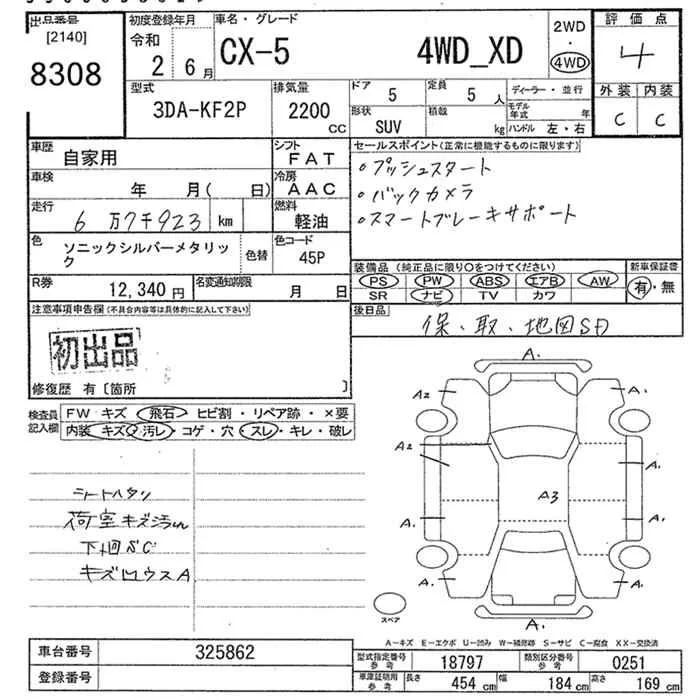 出品番号
[2140]
8308
初度登録年月
令和
2 6月
車名・グレード
CX-5 4WD_XD
2WD
・
4WD
評価点
4
外装 内装
C C
型式
3DA-KF2P
排気量
2200
CC
ドア
5
定員
5 人
形状
SUV
積載
kg
ディーラー・並行
モデル年式 年
ハンドル 左・右
車歴
自家用
シフト
FAT
車検
年 月( 日)
冷房
AAC
走行
6万7千923 km
燃料
軽油
色
ソニックシルバーメタリック
色替
色コード
45P
R券
12,340円
名変通知期限
月 日
セールスポイント(正常に機能するものに限ります)
。プッシュスタート
。バックカメラ
。スマートブレーキサポート
装備品 (純正品に限り○をつけてください)
PS PW ABS エアB AW
SR ナビ TV カワ
新車保証書
有・無
後日品
保・取・地図SD
注意事項申告欄(不具合内容等は具体的に記入して下さい)
初出品
修復歴 有〔箇所 〕
検査員
記入欄
FW キズ・飛石・ヒビ割・リペア跡・×要
内装 キズ・汚レ・コゲ・穴・スレ・キレ・破レ
シートハタリ
荷室キズ汚れ
下回SC
キズ凹ウスA
A.
A2
A.
A2
A.
A3
A.
A.
A.
A.
A.
スペア
A-キズ E-エクボ U-凹み W-補修跡 S-サビ C-腐食 XX-交換済
車台番号
325862
登録番号
型式指定番号
参考
18797
類別区分番号
参考
0251
車庫証明用
参考
長さ 454 cm
幅 184 cm
高さ 169 cm